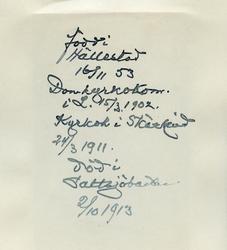 Född i
Hällestad
16/11 53
Domkyrkokom.
i L. 15/3 1902.
Kyrkoh i Skärkind
24/3 1911.
Död i
Saltsjöbaden
2/10 1913